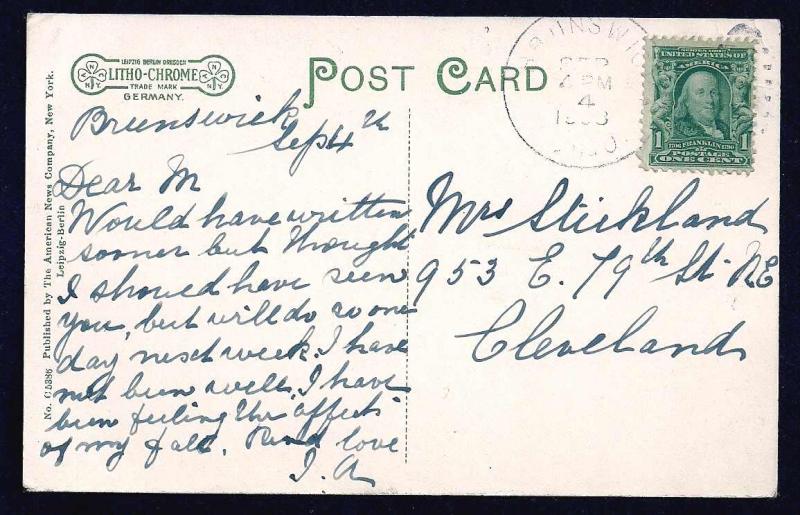 LEIPZIG BERLIN DRESDEN
LITHO-CHROME
TRADE MARK
GERMANY.
POST CARD
BRUNSWIC
SEP
4
1908
OHIO
SERIES 1902
UNITED STATES OF
AMERICA
1706 FRANKLIN 1790
1 POSTAGE 1
ONE CENT
No. C5386 Published by The American News Company, New York.
Leipzig-Berlin
Brunswick
Sep 4th
Dear M
Would have written
sooner but thought
I should have seen
you, but will do so one
day next week. I have
not been well, I have
been feeling the affects
of my fall. Kind love
J. A
Mrs Stickland
953 E. 79th St. NE
Cleveland